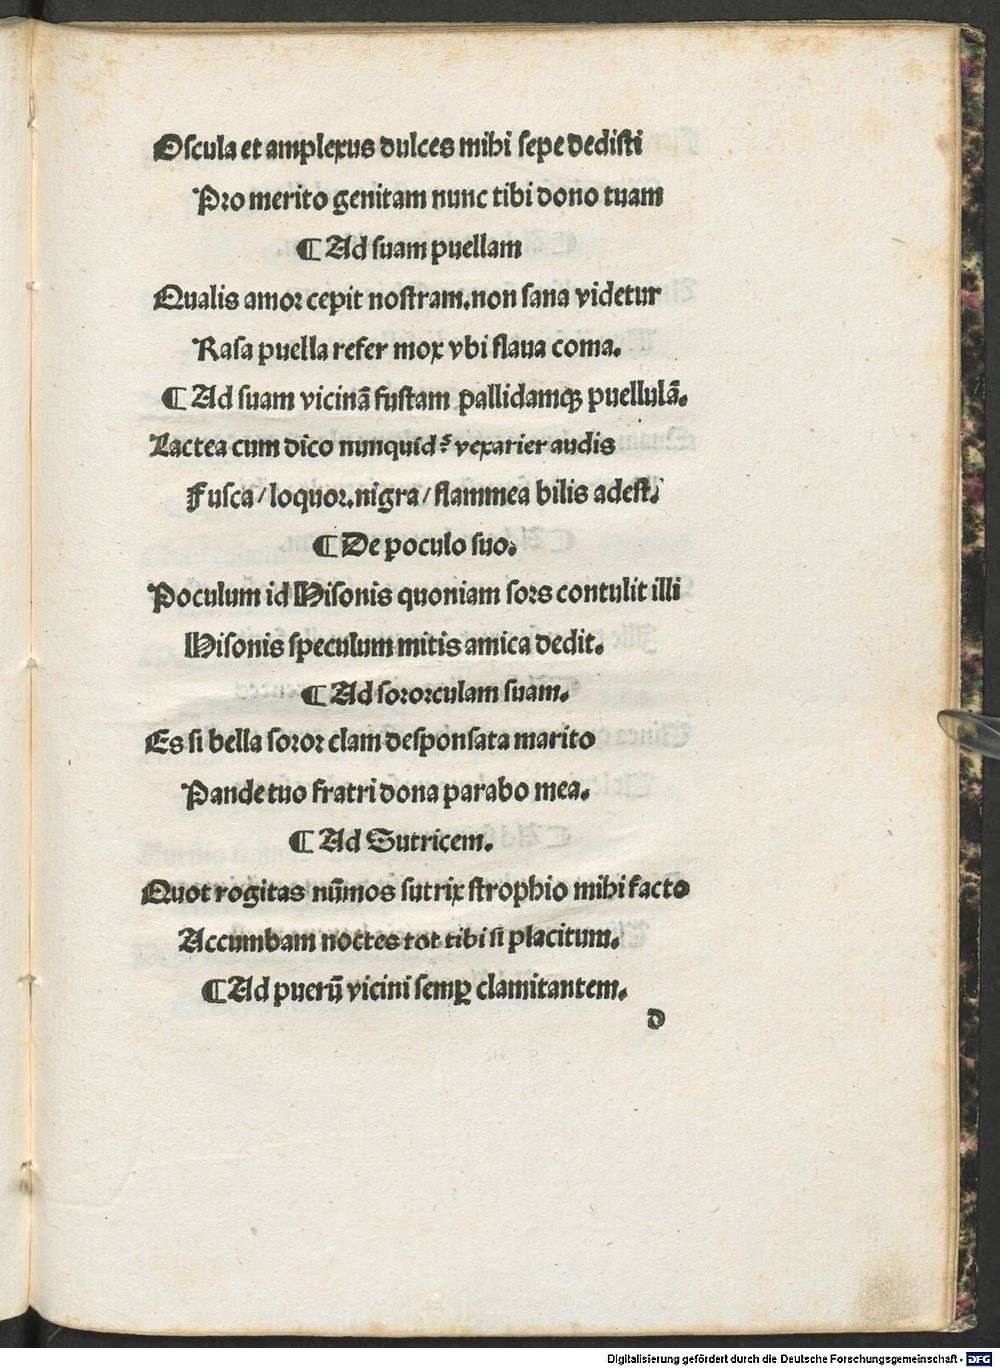 Oscula et amplexus dulces mihi sepe dedisti
Pro merito genitam nunc tibi dono tuam
¶ Ad suam puellam
Qualis amor cepit nostram. non sana videtur
Rasa puella refer mox vbi flaua coma.
¶ Ad suam vicinā fustam pallidamqꝫ puellulā.
Lactea cum dico nunquid vexarier audis
Fusca / loquor. nigra / flammea bilis adest.
¶ De poculo suo.
Poculum id Nisonis quoniam sors contulit illi
Nisonis speculum mitis amica dedit.
¶ Ad sororculam suam.
Es si bella soror clam desponsata marito
Pande tuo fratri dona parabo mea.
¶ Ad Sutricem.
Quot rogitas nūmos sutrix strophio mihi facto
Accumbam noctes tot tibi si placitum.
¶ Ad puerū vicini semꝑ clamitantem.
d
Digitalisierung gefördert durch die Deutsche Forschungsgemeinschaft - DFG